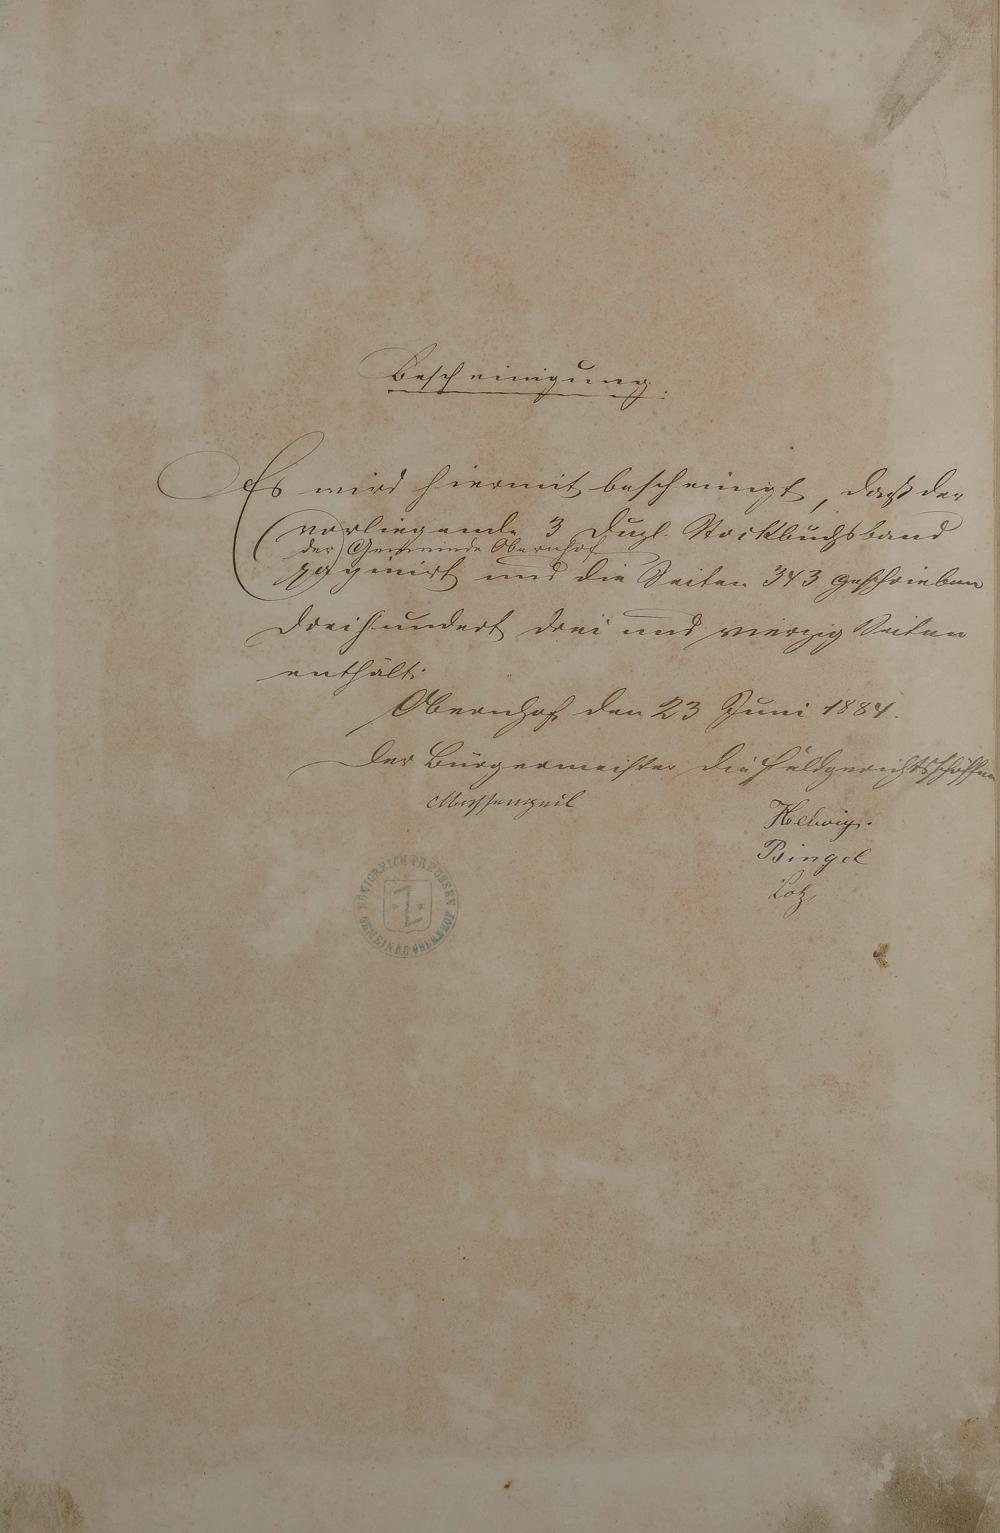 Bescheinigung.
Es wird hiermit bescheinigt, daß der
vorliegende 3 Dupl. Stockbuchsband
der Gemeinde Obernhof
paginirt und die Seiten 343 geschrieben
dreihundert drei und vierzig Seiten
enthält.
Obernhof, den 23 Juni 1884.
Der Bürgermeister die Feldgerichtsschöffen
Massengeil
Helwig.
Bingel
Lotz
KÖNIGREICH PREUSSEN
GEMEINDE OBERNHOF